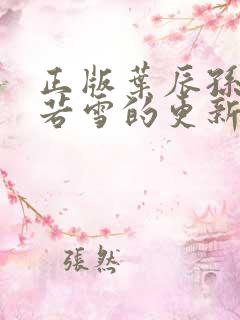 正版葉辰孫
若雪的更新
張然